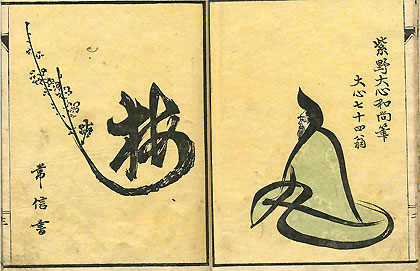 紫野大心和尚筆
大心七十四翁
梅
常信書